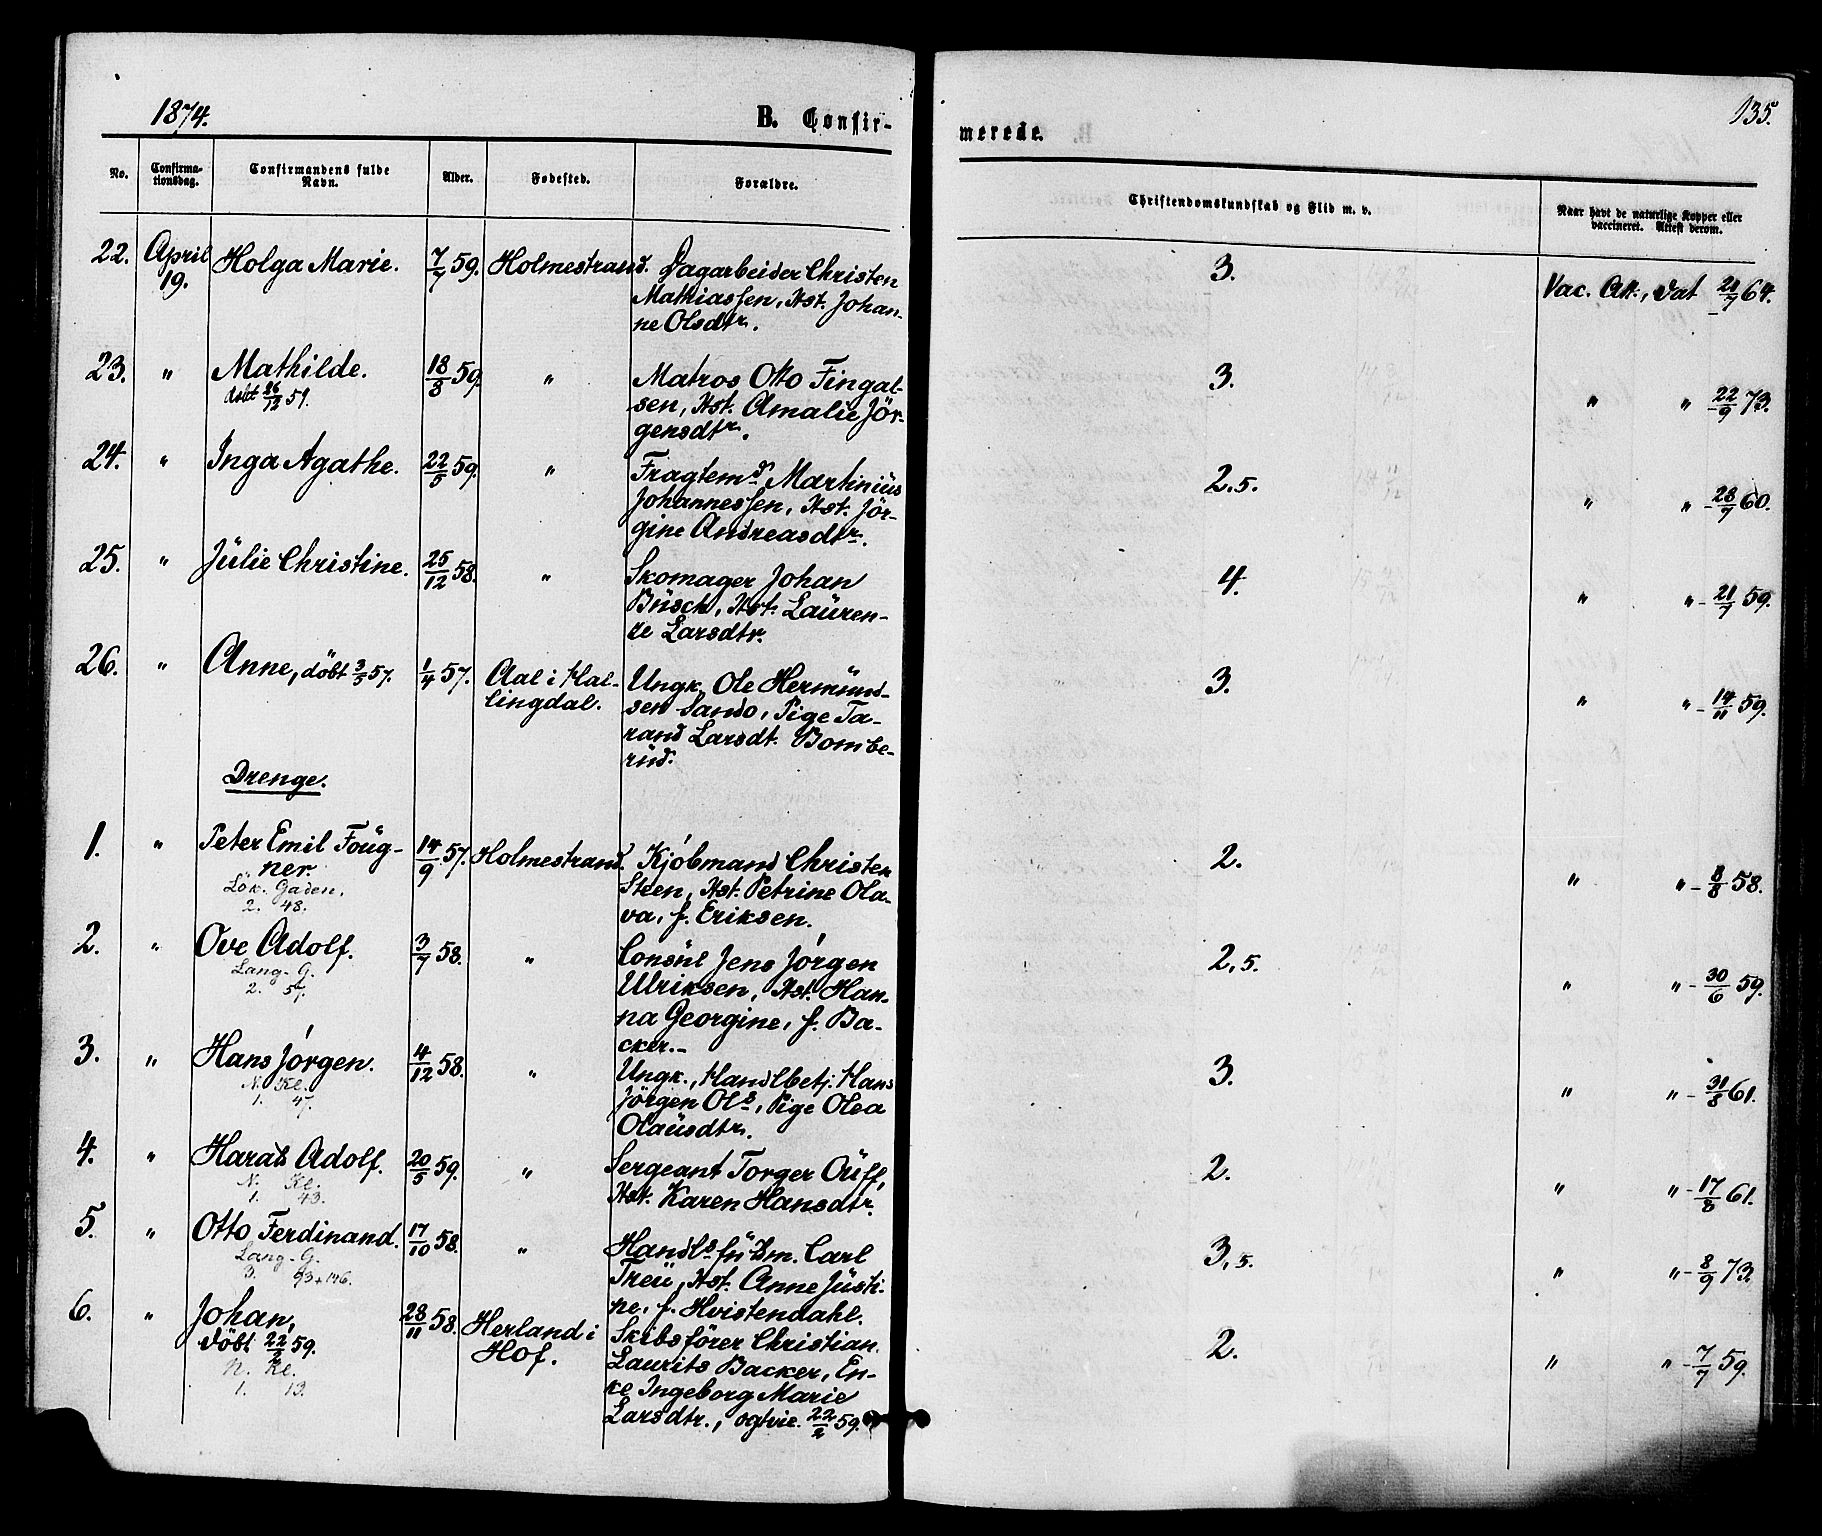 1874.
B. Confir-
merede.
135.
No.
Confirma-
tionsdag.
Confirmandens fulde
Navn.
Alder.
Fødested.
Forældre.
Christendomskundskab og Flid m. v.
Naar havt de naturlige Kopper eller
vaccineret. Attest derom.
22. April 19. Holga Marie. 7/7 59. Holmestrand. Dagarbeider Christen
Mathiassen, Hst. Johan-
ne Olsdtr.
3. Vac. Att., dat 21/7 64.
23. " Mathilde. 18/8 59. " Matros Otto Fingal-
døbt 26/12 59. sen, Hst. Amalie Jör-
gensdtr.
3. " " - 22/9 73.
24. " Inga Agathe. 22/5 59. " Fragtemd. Martinius
Johannessen, Hst. Jör-
gine Andreasdtr.
2.5. " " - 28/7 60.
25. " Julie Christine. 25/12 58. " Skomager Johan
Busch, Hst. Lauren-
ze Larsdtr.
4. " " - 21/7 59.
26. " Anne, döbt 3/5 57. 1/4 57. Aal i Hal-
lingdal. Ungk. Ole Hermund-
sen Sando, Pige Ta-
rand Larsdt. Bombe-
rud.
3. " " - 14/11 59.
Drenge.
1. " Peter Emil Foug-
ner. 14/9 57. Holmestrand. Kjöbmand Christen
Lök. Gaden. Steen, Hst. Petrine Ola-
2. 48. va, f. Eriksen.
2. " " - 8/8 58.
2. " Ove Adolf. 3/7 58. " Consul Jens Jörgen
Lang-G. Ulriksen, Hst. Han-
2. 57. na Georgine, f. Ba-
cker.-
2,5. " " - 30/6 59.
3. " Hans Jörgen. 4/12 58. " Ungk., Handlbetj. Hans
N. Kl. Jörgen Ols, Pige Olea
1. 47. Olausdtr.
3. " " - 31/8 61.
4. " Harald Adolf. 20/5 59. " Sergeant Torger Ouff,
N. Kl. Hst. Karen Hansdtr.
1. 43.
2. " " - 17/8 61.
5. " Otto Ferdinand. 17/10 58. " Carl
Lang-G. Treu, Hst. Anne Justi-
3. ne, f. Hvistendahl.
3,5. " " - 8/9 73.
6. " Johan, 28/11 58. Herland i
Hof. Skibsförer Christian
döbt 22/2 59. Laurits Backer, En-
N. Kl. ke Ingeborg Marie
1. 13. Larsdtr., ogtvie. 22/2 59.
2. " " - 7/7 59.